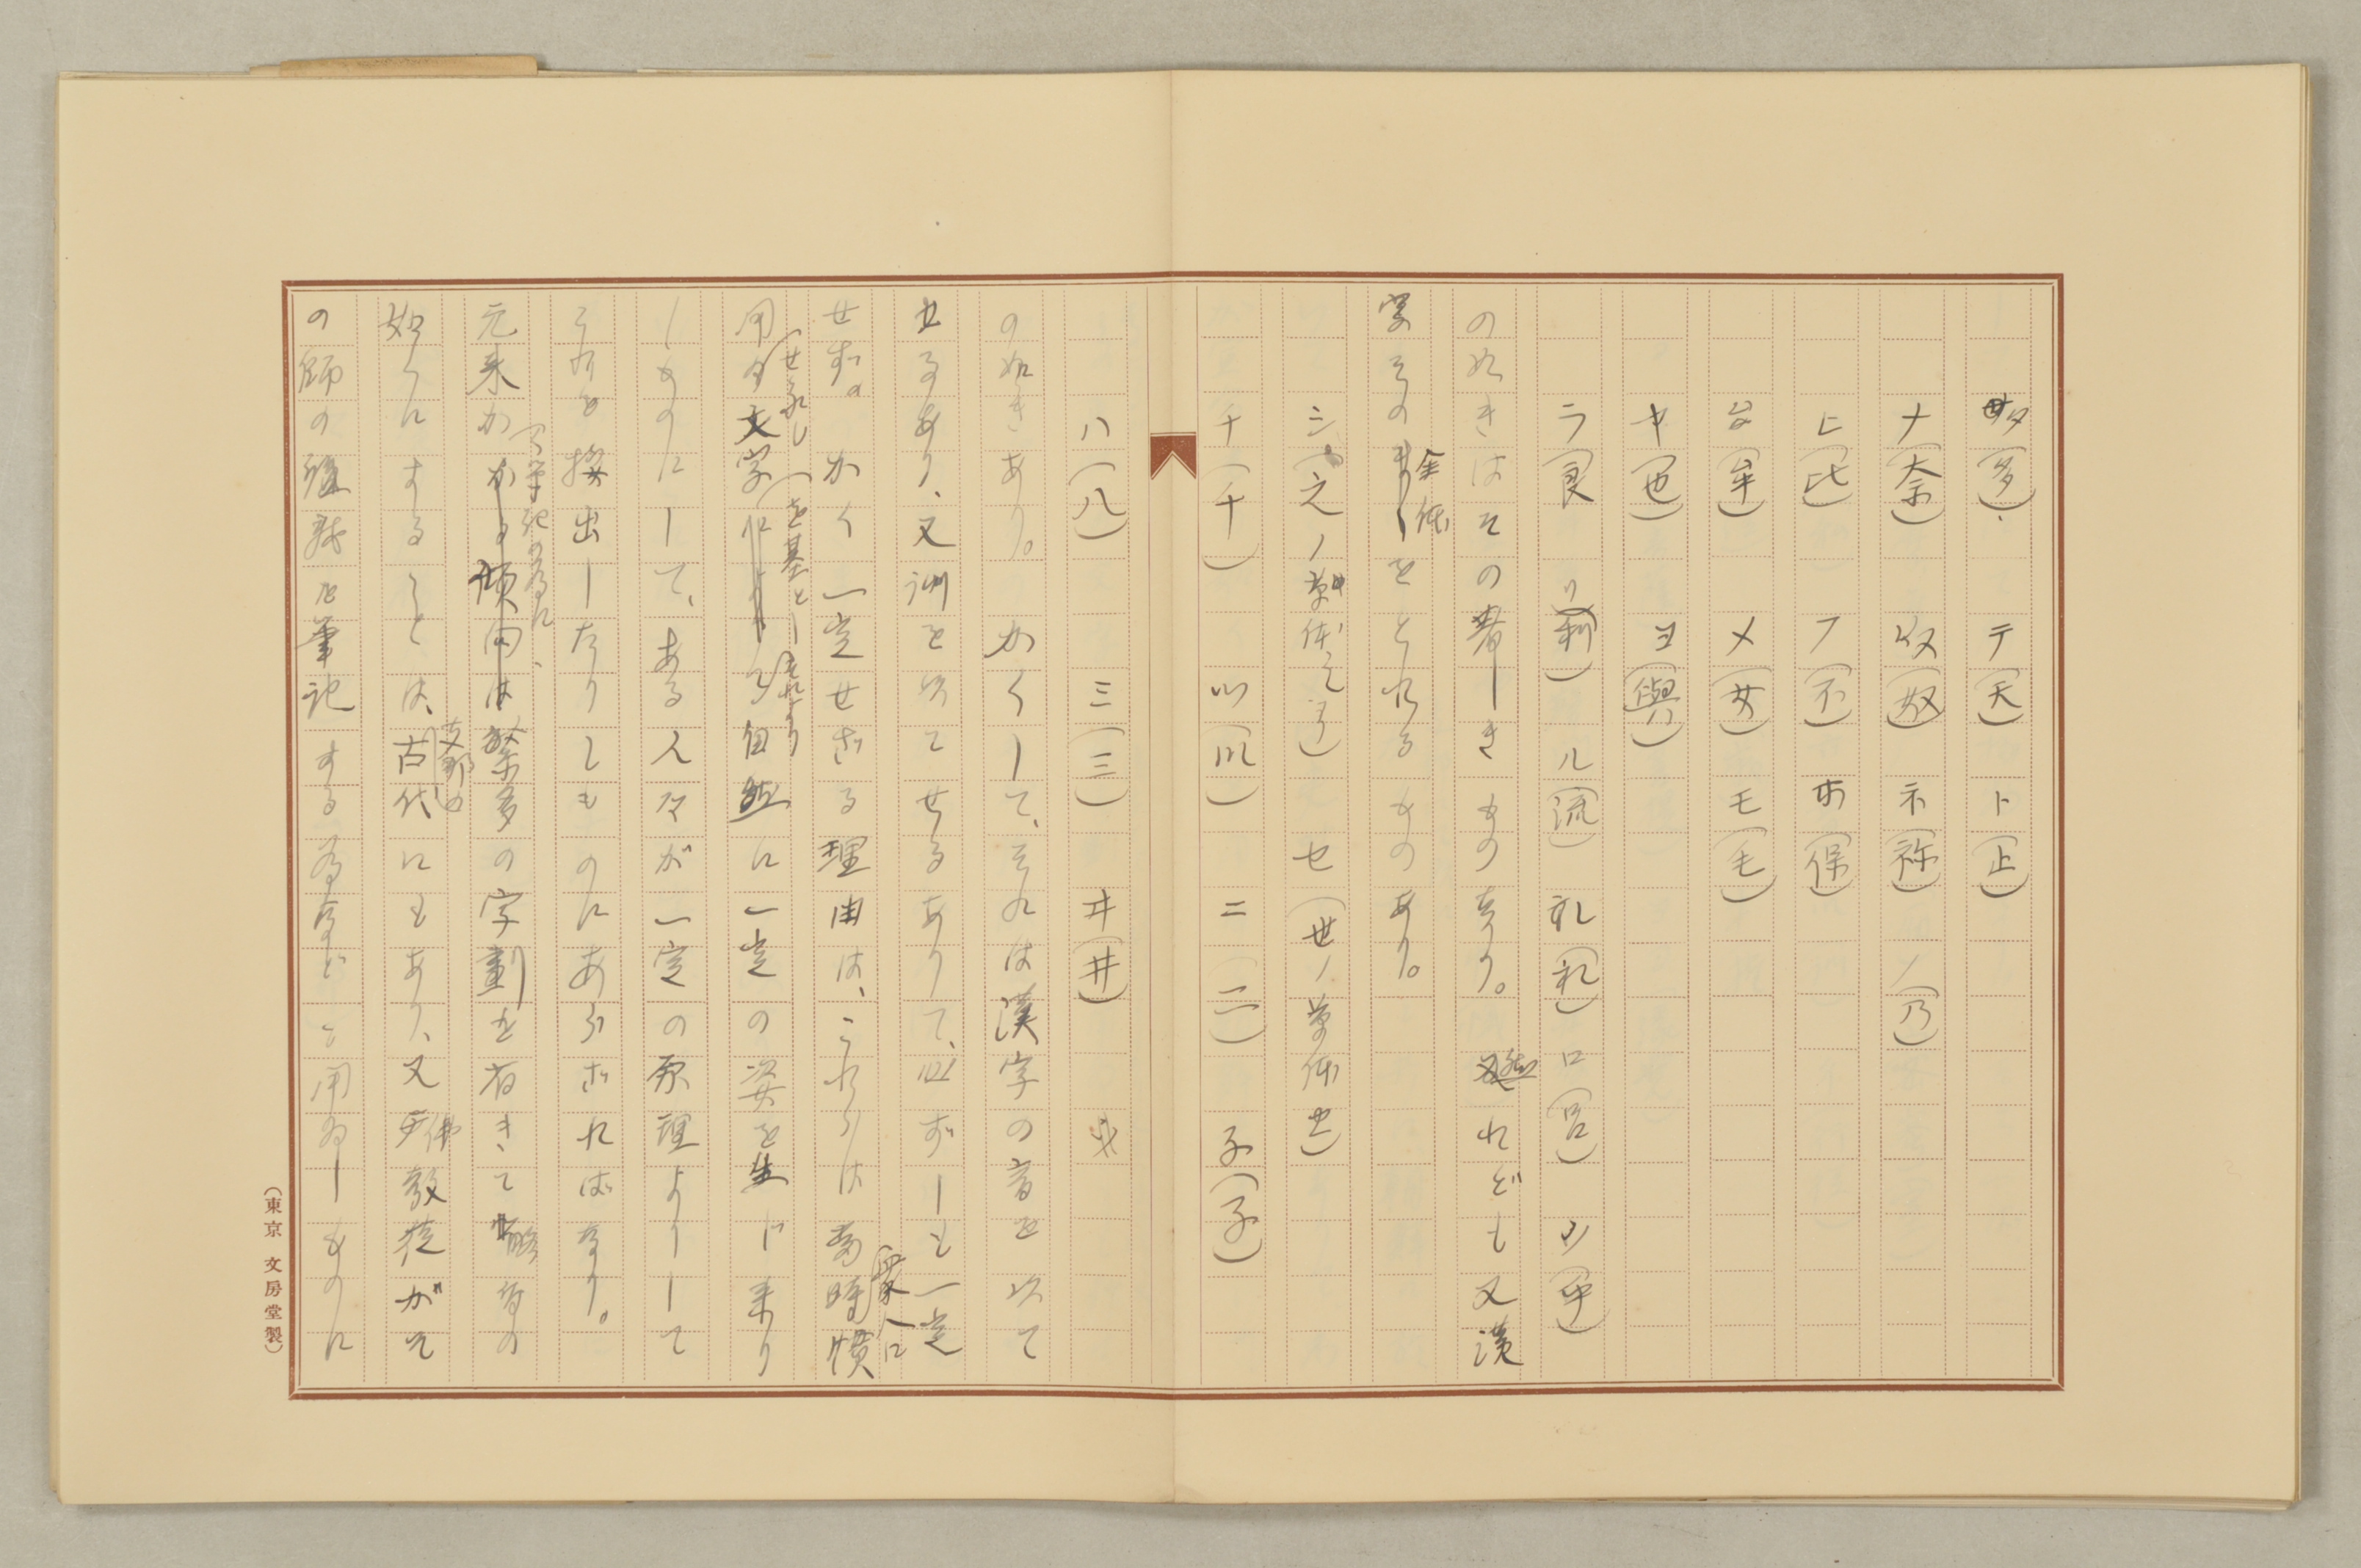 タ(多) テ(天) ト(止)
ナ(奈) ヌ(奴) ネ(祢) ノ(乃)
ヒ(比) フ(不) ホ(保)
ム(牟) メ(女) モ(毛)
ヤ(也) ヨ(與)
ラ(良) リ(利) ル(流) 礼(礼) ロ(呂) (乎)
の如きはその著しきものなり。然れども又漢
字その全体をとれるものあり。
シ(之ノ草体) セ(世ノ草体)
千(千) (川) ニ(二) 子(子)
ハ(八) 三(三) 井(井)
の如きあり。かくして、それは漢字の音を以て
せるあり、又訓を以てせるありて、必ずしも一定
せず。かく一定せざる理由は、これらは当時衆人に慣
用せられし文字を基としそれより自然に一定の姿を生じ来り
しものにして、ある人々が一定の原理よりして
これを撰出したりしものにあらざればなり。
元来か
繁多の字劃を有きて略

如くにすることは、支那の古代にもあり、又佛教徒がそ
の師の講義を筆記する為などに用ゐしものに
(東京 文房堂製)